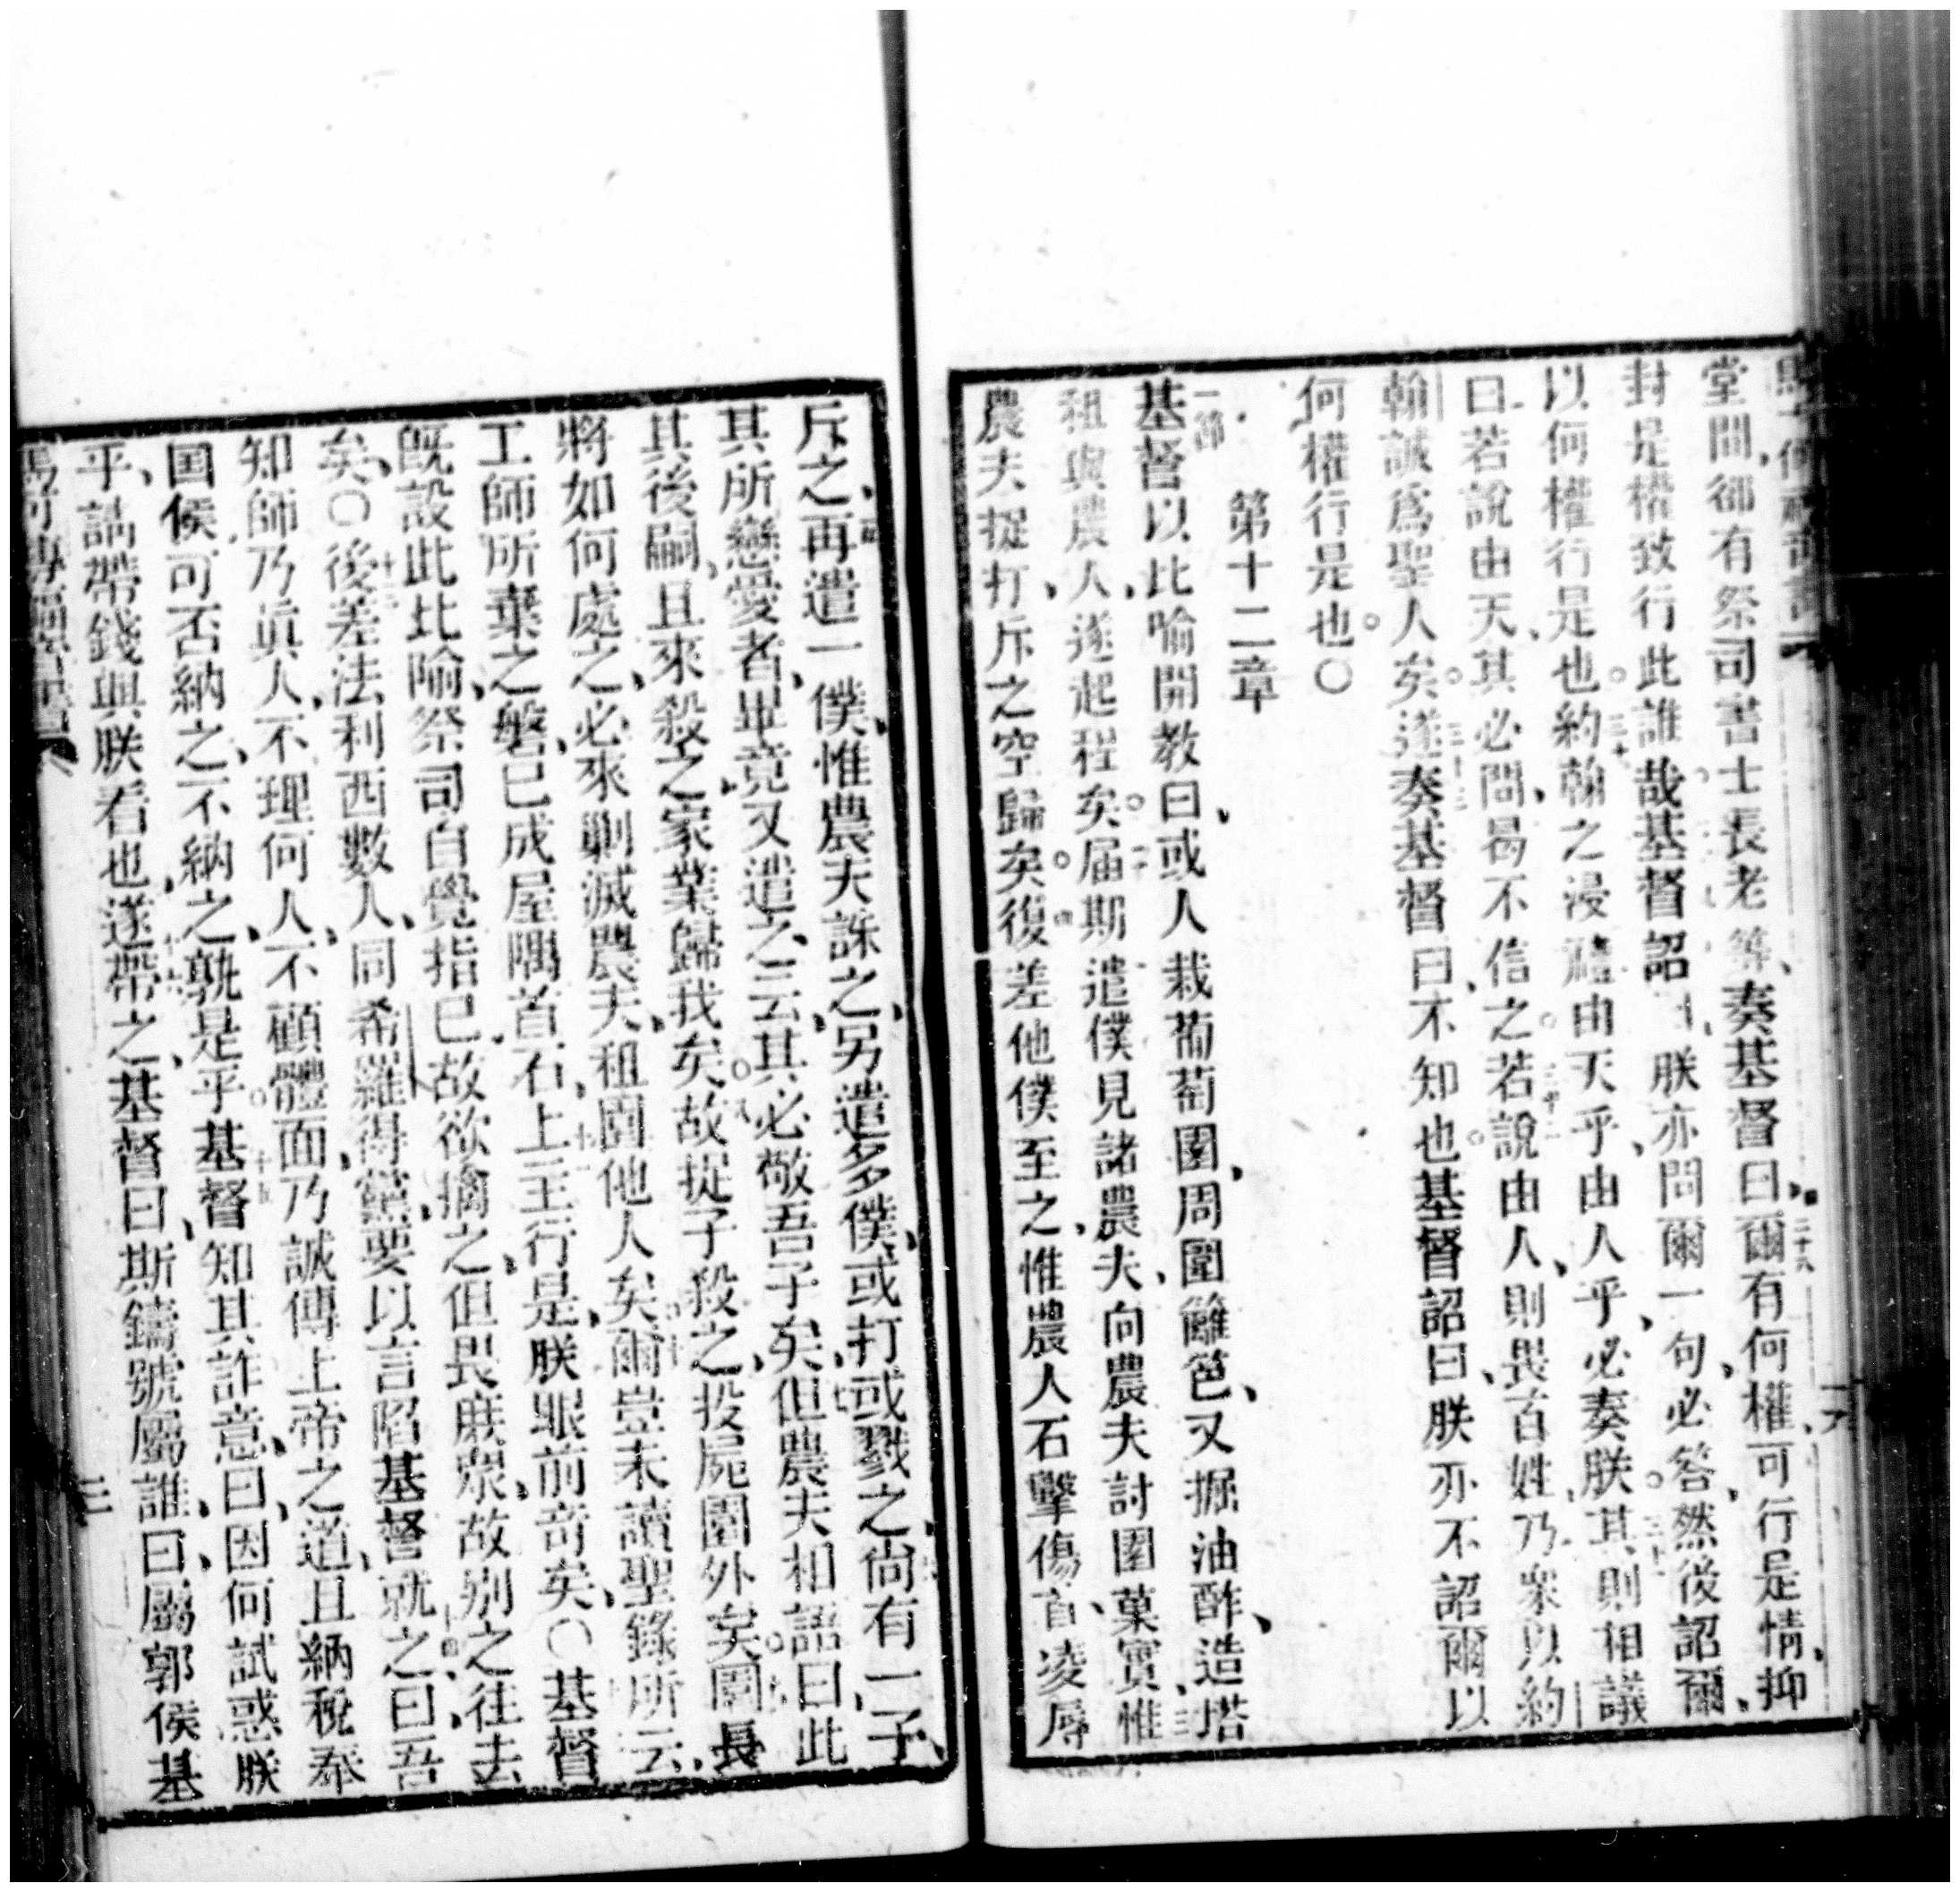 堂間、都有祭司書士長老等、奏基督曰、二十八爾有何權、可行是情、抑
封是權致行此誰哉。基督詔曰、朕亦問爾一句、必答、然後詔爾、
以何權行是也。三十約翰之浸禮由天乎、由人乎、必奏朕。三十一其則相議
曰、若說由天、其必問、曷不信之。三十二若說由人、則畏百姓、乃衆以約
翰誠爲聖人矣。三十三遂奏基督曰、不知也。基督詔曰、朕亦不詔爾以
何權行是也。○
第十二章
一節基督以此喻開教曰、或人栽葡萄園、周圍籬笆、又掘油醡、造塔
租與農人、遂起程矣。二十屆期遣僕見諸農夫、向農夫討園菓實、三惟
農夫捉打、斥之空歸矣。四復差他僕至之、惟農人石擊傷首、凌辱
斥之、五再遣一僕、惟農夫誅之、另遣多僕、或打或戮之、六尚有一子、
其所戀愛者、畢竟又遣之、云、其必敬吾子矣、七但農夫相語曰、此
其後嗣、且來殺之、家業歸我矣。八故捉子殺之、投屍園外矣。九園長
將如何處之、必來剿滅農夫、租園他人矣。十爾豈未讀聖錄所云、
工師所棄之磐、已成屋隅首石、十一上主行是、朕眼前奇矣、○基督
旣設此比喻、祭司自覺指已、故欲擒之、但畏庶衆、故别之往去
矣、○十三後差法利西數人、同希羅得黨、要以言陷基督、十四就之曰、吾
知師乃眞人、不理何人、不顧體面、乃誠傳上帝之道、且納稅奉
国侯可否、納之、不納之、孰是乎。十五基督知其詐意、曰、因何試惑朕
乎、請帶錢與朕看也、十六遂帶之、基督曰、斯鑄號屬誰、曰、屬郭侯、基
馬可傳福音書
三